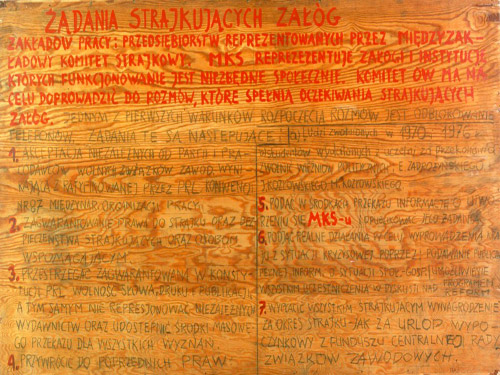 ŻĄDANIA STRAJKUJĄCYCH ZAŁÓG
ZAKŁADÓW PRACY I PRZEDSIĘBIORSTW REPREZENTOWANYCH PRZEZ MIĘDZYZAK-
ŁADOWY KOMITET STRAJKOWY. MKS REPREZENTUJE ZAŁOGI I INSTYTUCJE,
KTÓRYCH FUNKCJONOWANIE JEST NIEZBĘDNE SPOŁECZNIE. KOMITET ÓW MA NA
CELU DOPROWADZIĆ DO ROZMÓW, KTÓRE SPEŁNIĄ OCZEKIWANIA STRAJKUJĄCYCH
ZAŁÓG. JEDNYM Z PIERWSZYCH WARUNKÓW ROZPOCZĘCIA ROZMÓW JEST ODBLOKOWANIE
TELEFONÓW. ŻĄDANIA TE SĄ NASTĘPUJĄCE:
1. AKCEPTACJA NIEZALEŻNYCH OD PARTII I PRA-
CODAWCÓW WOLNYCH ZWIĄZKÓW ZAWOD. WYNI-
KAJĄCA Z RATYFIKOWANEJ PRZEZ PRL KONWENCJI
NR 87 MIĘDZYNAR. ORGANIZACJI PRACY.
2. ZAGWARANTOWANIE PRAWA DO STRAJKU ORAZ BEZ-
PIECZEŃSTWA STRAJKUJĄCYCH ORAZ OSOBOM
WSPOMAGAJĄCYM.
3. PRZESTRZEGAĆ ZAGWARANTOWANĄ W KONSTY-
TUCJI PRL WOLNOŚĆ SŁOWA, DRUKU I PUBLIKACJI,
A TYM SAMYM NIE REPRESJONOWAĆ NIEZALEŻNYCH
WYDAWNICTW ORAZ UDOSTĘPNIĆ ŚRODKI MASOWE-
GO PRZEKAZU DLA WSZYSTKICH WYZNAŃ.
4. PRZYWRÓCIĆ DO POPRZEDNICH PRAW:
a) ludzi zwolnionych w 1970 i 1976 r.
studentów wydalonych z uczelni za przekonania
ZWOLNIĆ WIĘŹNIÓW POLITYCZNYCH E. ZADROŻYŃSKIEGO
J. KOZŁOWSKIEGO M. KOZŁOWSKIEGO
5. PODAĆ W ŚRODKACH PRZEKAZU INFORMACJĘ O UTWO-
RZENIU SIĘ MKS-u I PUBLIKOWAĆ JEGO ŻĄDANIA
6. PODJĄĆ REALNE DZIAŁANIA W CELU WYPROWADZENIA
Z SYTUACJI KRYZYSOWEJ POPRZEZ: PODAWANIE PUBLICZNIE
7. WYPŁACIĆ WSZYSTKIM STRAJKUJĄCYM WYNAGRODZENIE
ZA OKRES STRAJKU JAK ZA URLOP WYPO-
CZYNKOWY Z FUNDUSZU CENTRALNEJ RADY
ZWIĄZKÓW ZAWODOWYCH.